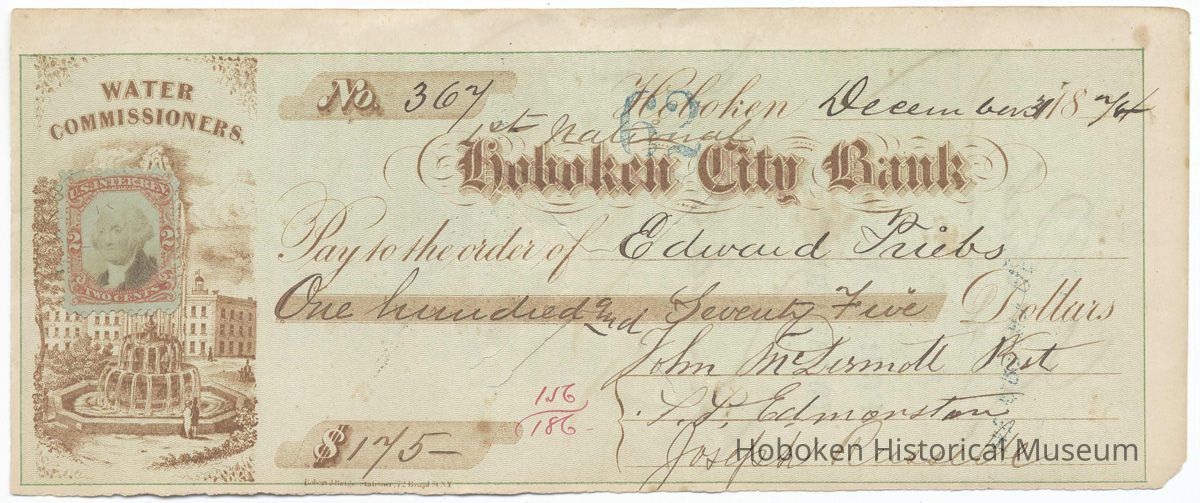 WATER
COMMISSIONERS.
U.S. INTER. REV.
2 2
TWO CENTS
No. 367
Hoboken December 31 1874
1st National
Hoboken City Bank
Pay to the order of Edward Priebs
One hundred and Seventy Five Dollars
John McDermott Prst
156
186-
Edmonston
$175-
Joseph
Hoboken Historical Museum